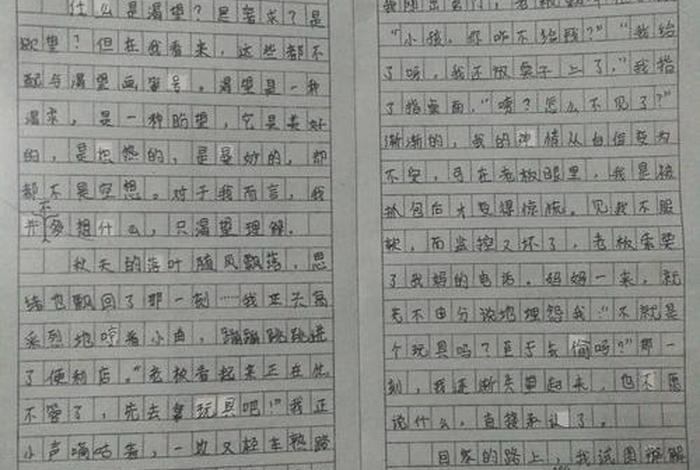 什么是渴望？是苛求？是
欲望？但在我看来，这些都不
配与渴望画等号。渴望是一种
渴求，是一种盼望，它是美好
的，是炽热的，是曼妙的，却
都不是空想。对于我而言，我
并不多想什么，只渴望理解。
秋天的落叶随风飘落，思
绪也飘回了那一刻……我正兴高
采烈地哼着小曲，蹦蹦跳跳进
了便利店。“老板看起来正在忙
不管了，先去拿玩具吧！”我正
小声嘀咕着，一边又轻车熟路
“小孩，你咋不给钱？”“我给
了呀，我不放桌子上了。”我指
了指桌面，“嘀？怎么不见了？”
渐渐的，我的神情从自信变为
不安，可在老板眼里，我是被
扒包后才变得惊慌。见我不服
软，而监控又坏了，老板索要
了我妈的电话。妈妈一来，就
先不由分说地埋怨我：“不就是
个玩具吗？至于去偷吗？”那一
刻，我逐渐失望起来，也不愿
说什么，直接承认了。
回家的路上，我试图理解